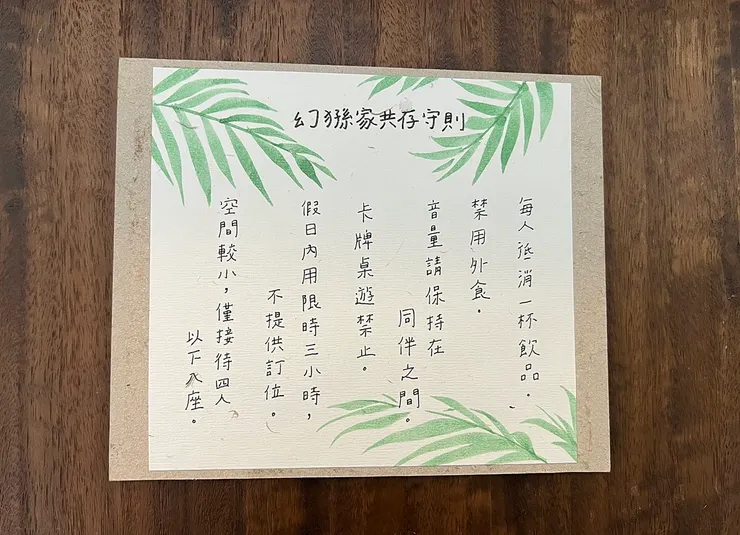 幻猻家共存守則
每人低消一杯飲品。
禁用外食。
音量請保持在
同伴之間。
卡牌桌遊禁止。
假日內用限時三小時，
不提供訂位。
空間較小，僅接待四人
以下入座。